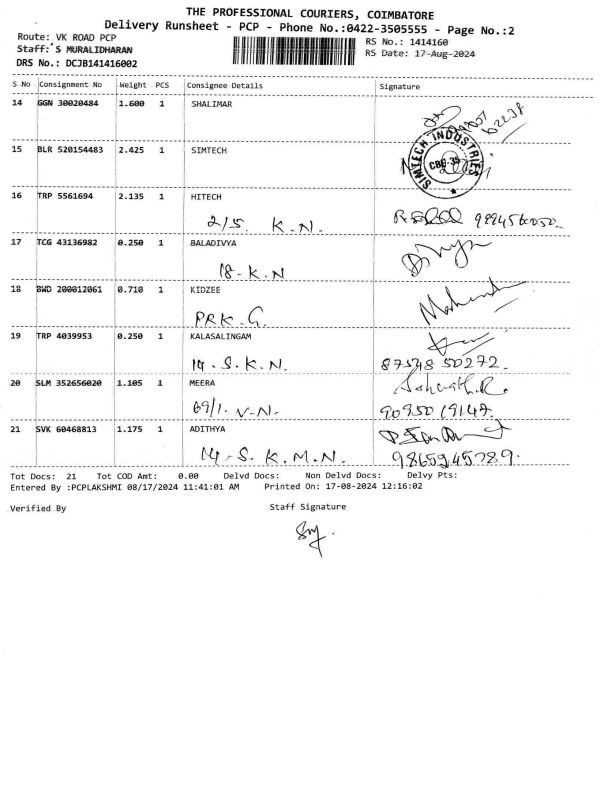 THE PROFESSIONAL COURIERS, COIMBATORE
Delivery Runsheet - PCP - Phone No.:0422-3505555 - Page No.:2
Route: VK ROAD PCP
RS No.: 1414160
Staff: S MURALIDHARAN
RS Date: 17-Aug-2024
DRS No.: DCJB141416002
S No Consignment No Weight PCS Consignee Details Signature
14 GGN 30020484 1.600 1 SHALIMAR
15 BLR 520154483 2.425 1 SIMTECH
SIMTECH INDUSTRIES
CBE-35
16 TRP 5561694 2.135 1 HITECH
2/5. K.N.
17 TCG 43136982 0.250 1 BALADIVYA
18-K.N
18 BWD 200012061 0.710 1 KIDZEE
PRK.G.
19 TRP 4039953 0.250 1 KALASALINGAM
14.S.K.N. 87548 50272
20 SLM 352656020 1.105 1 MEERA
69/1. V-N. 9095019147.
21 SVK 60468813 1.175 1 ADITHYA
14-S.K.M.N. 9865945789.
Tot Docs: 21 Tot COD Amt: 0.00 Delvd Docs: Non Delvd Docs: Delvy Pts:
Entered By :PCPLAKSHMI 08/17/2024 11:41:01 AM Printed On: 17-08-2024 12:16:02
Verified By Staff Signature